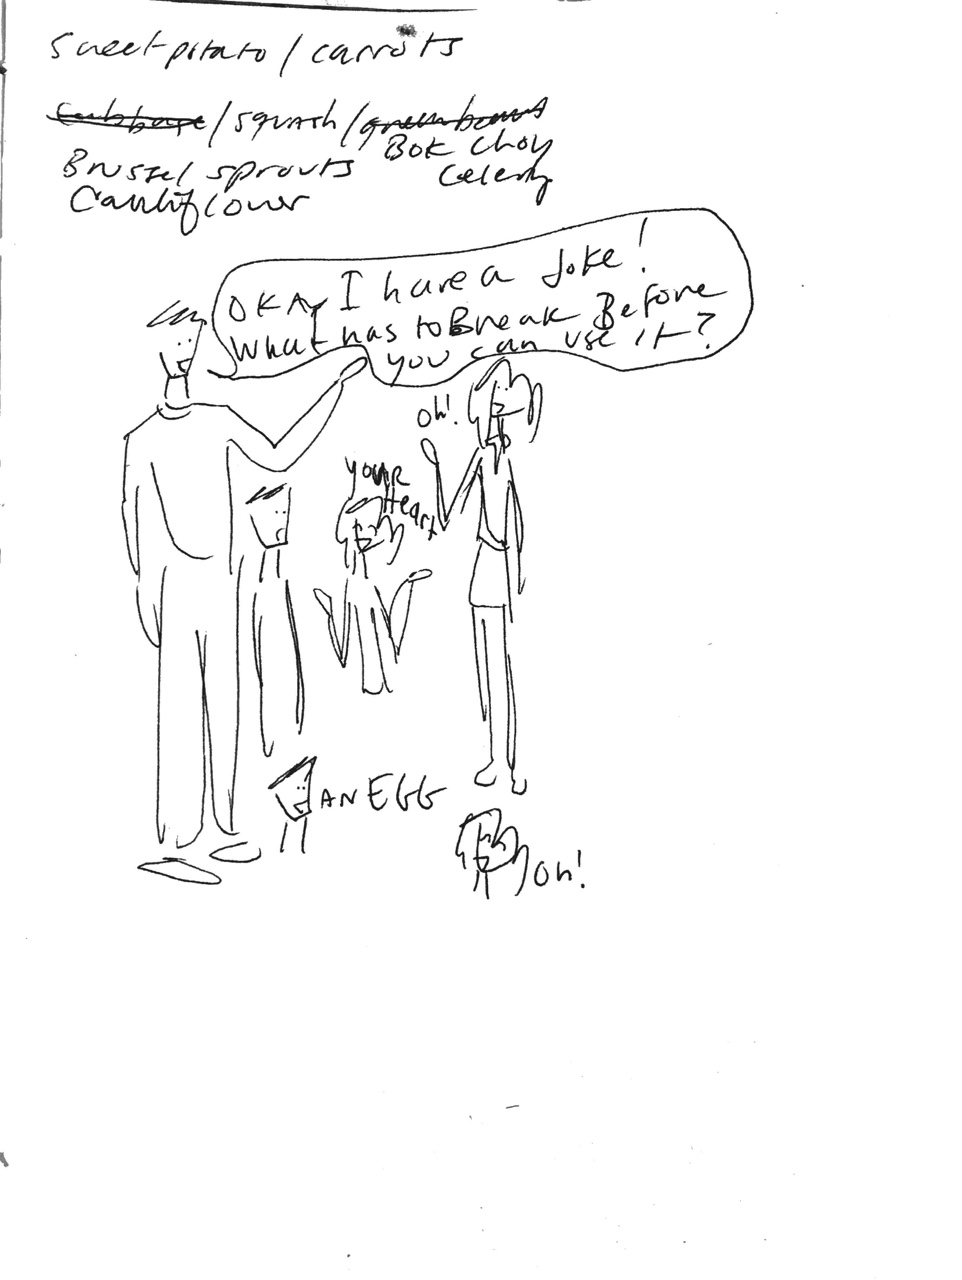 sweet potato / carrots
cabbage / squash / green beans
Bok choy
Brussel sprouts
celery
Cauliflower
OKAY I have a Joke!
What has to Break Before
you can use it?
oh!
your
Heart
AN EGG
oh!